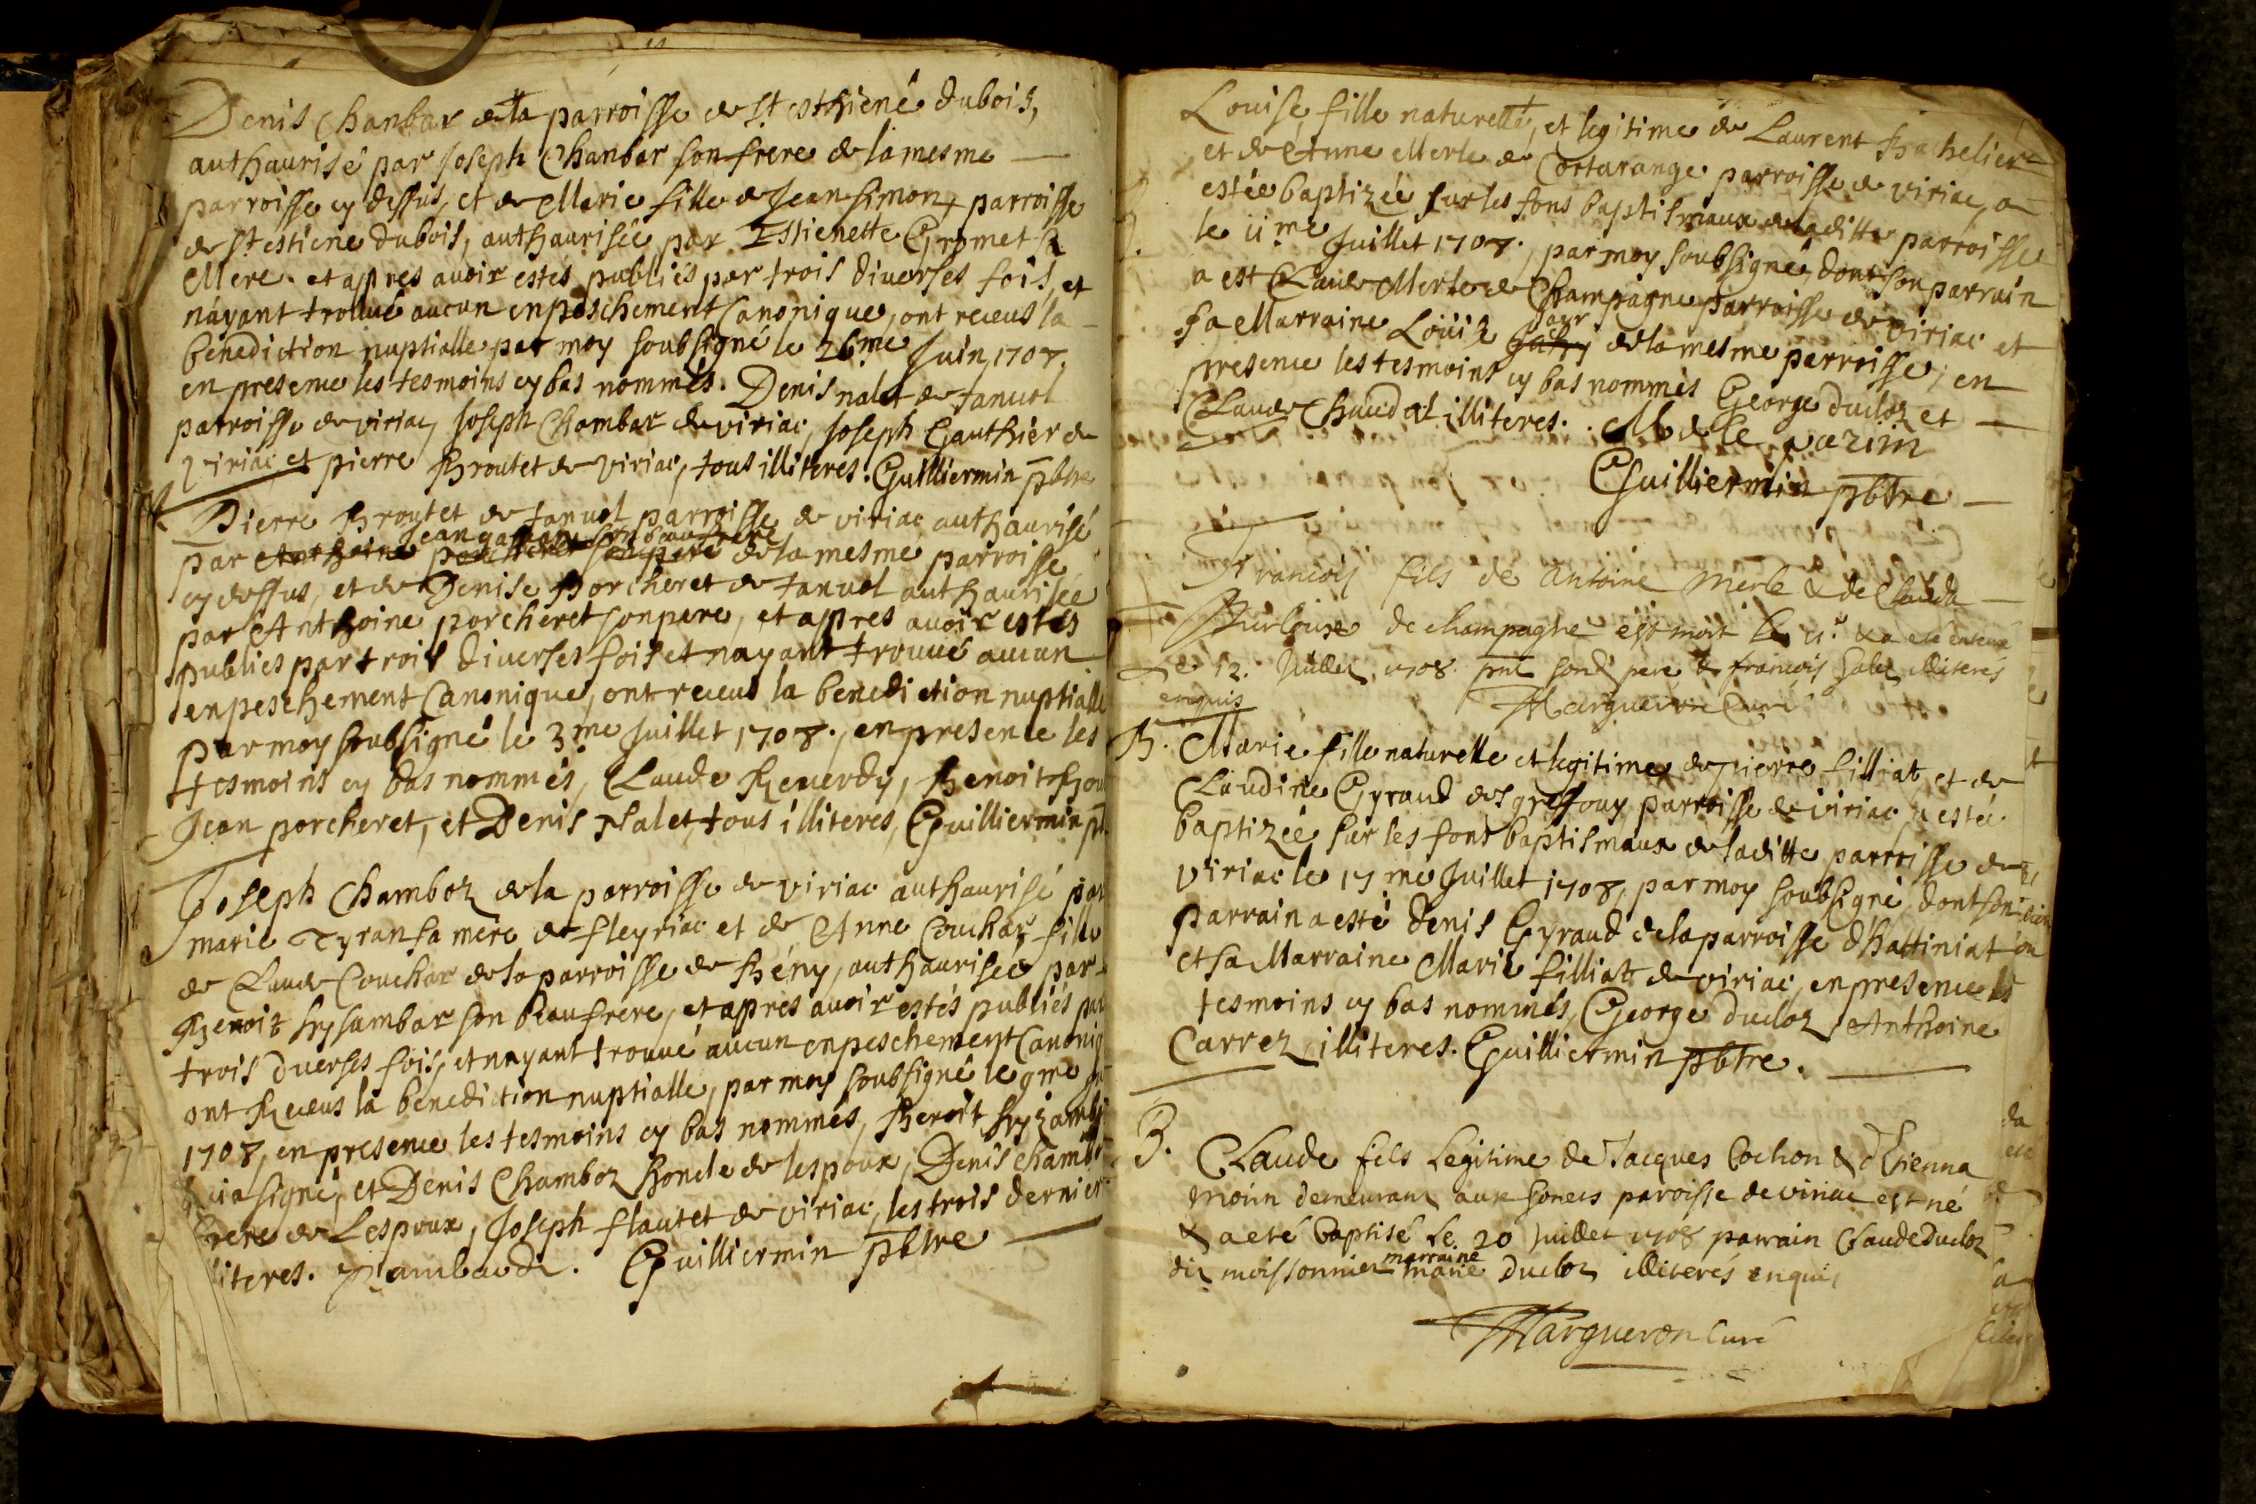 Denis Chanbar de la parroisse de st esthiene dubois,
authaurisé par Joseph Chanbar son frere de la mesme
parroisse cy dessus, et de Marie fille de Jean Simon, parroisse
de st estiene dubois, authaurisée par Estienette Gromet sa
Mere. et apres avoir estés publiés par trois diverses fois, et
nayant trouvé aucun enpeschement Canonique, ont receus la
benediction nuptialle par moy soubsigné le 26me Juin, 1708,
en presence les tesmoins cy bas nommés. Denis nalet de tanvol
parroisse de viriac, Joseph Chambar de viriac, Joseph Gauthier de
viriac et pierre Broutet de viriac, tous illiteres. Guilliermin pbtre
Pierre Broutet de tanvol parroisse de viriac authaurisé
Jean son beaufrere
par Anthoine porcheret son pere de la mesme parroisse
cy dessus, et de Denise Porcheret de tanvol authaurisée
par Anthoine porcheret son pere, et apres avoir estés
publies par trois diverses fois et nayant trouvé aucun
enpeschement Canonique, ont receus la benediction nuptialle
par moy soubsigné le 3me Juillet 1708., en presence les
tesmoins cy bas nommés, Claude Reverdy, Benoit
Jean porcheret, et Denis Nalet, tous illiteres, Guilliermin
Joseph Chamboz de la parroisse de viriac authaurisé par
marie Tyran sa mere de fleyriac et de Anne Couchar, fille
de Claude Couchar de la parroisse de Beny, authaurisée par
Benoit frysambar son beaufrere, et apres avoir estés publiés par
trois duerses fois, et nayant trouvé aucun enpeschement Canoniq
ont Receus la benediction nuptialle, par moy soubsigné le 9me
1708, en presence les tesmoins cy bas nommés, Benoit
signé, et Denis Chamboz honcle de lespoux, Denis chamb
frere de Lespoux, Joseph flautet de viriac, les trois dernier
literes. Guilliermin pbtre
Louise fille naturelle, et legitime de Laurent Bachelier
et de Anne Merle de Cortarange parroisse de viriac, a
estée baptizée sur les fons baptismaux de laditte parroisse
le 11me Juillet 1708., par moy soubsigné, dont son parrain
a est Claude Merle de Champagne parroisse de viriac et
sa Marraine Louize de la mesme parroisse, en
presence les tesmoins cy bas nommés George ducloz et
Claude Chaudat illiteres.
Guilliermin pbtre
Francois fils de Antoine Merle & de Clauda
de champagne est mort le 11e & a eté enterré
le 12. Juillet 1708. pnt sond pere & francois illiterés
enquis Margueron Curé
B. Marie fille naturelle et legitime de pierre filliat, et de
Claudine Gyraud des greffouz parroisse de viriac a estée
baptizée sur les fons baptismaux de laditte parroisse de
viriac le 17me Juillet 1708, par moy soubsigné, dont son
parrain a esté Denis Gyraud de la parroisse dhattiniat
et sa Marraine Marie filliat de viriac, en presence les
tesmoins cy bas nommés, George ducloz, Anthoine
Carrez illiteres. Guilliermin pbtre.
B. Claude fils Legitime de Jacques Cochon & dEtienna
demeurant aux paroisse de viriac est né
& a eté baptisé le 20 Juillet 1708 parrain Claude Ducloz
marraine
dit moissonnier marie Ducloz illiterés enquis
Margueron Curé